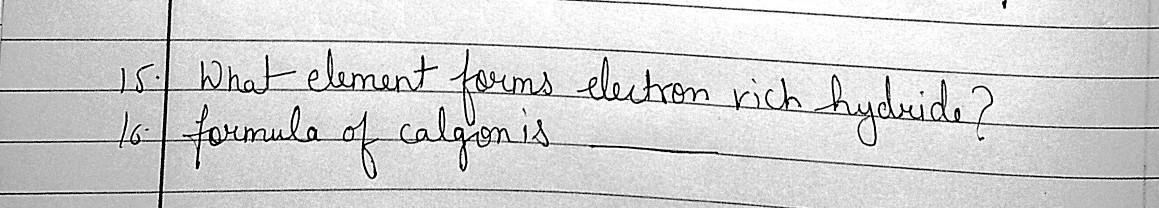 15. What element forms electron rich hydride?
16. formula of calgon is ________